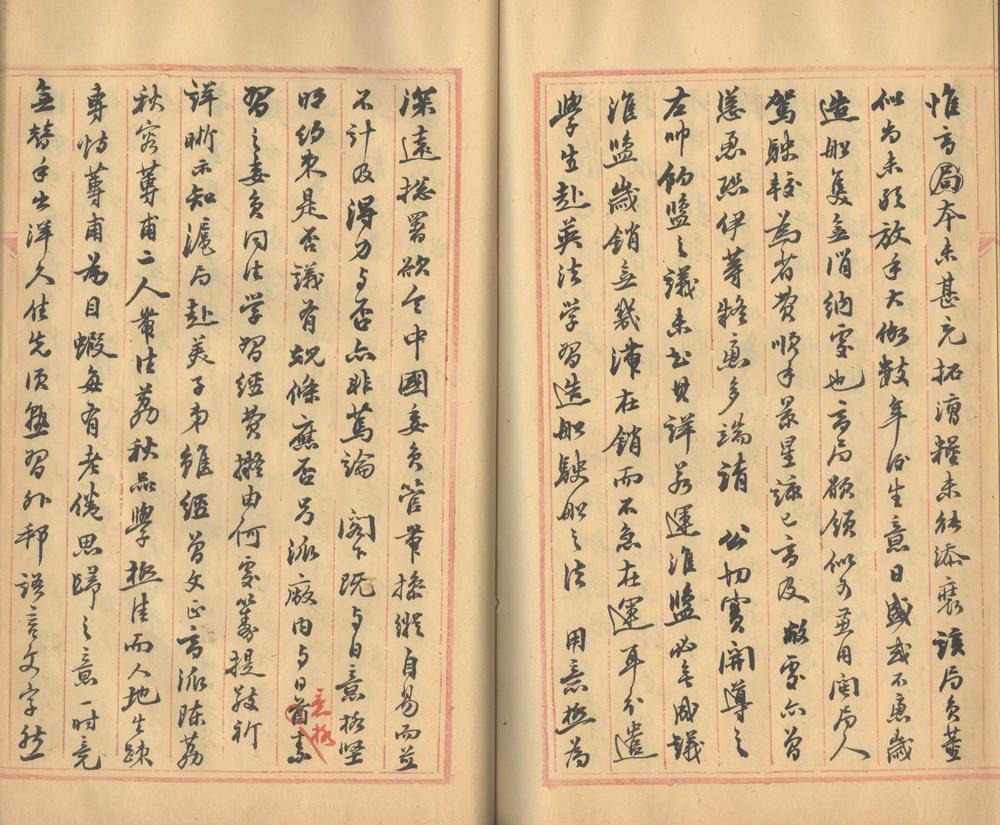 惟商局本未甚充拓漕糧未能添裹該局員董
似尚未敢放手大做數年後生意日盛或不患歲
造船隻無消納處也商局願領似可兼用閩局人
駕駛較為省費順手景星謂已言及敝處亦曾
慫恿聽伊等疑慮多端請 公切實開導之
左帥鹽之議未知其詳若運淮鹽必無成議
淮鹽歲銷無幾滯在銷而不急在運耳分遣
學生赴英法學習造船駛船之法 用意極為
深遠總署欲令中國委員管帶操縱自易而並
不計及得力与否亦非篤論 閣下既与日意格堅
明約束是否議有規條應否另派廠內与日意格素
習之委員同往學習經費擬由何處籌提敬祈
詳晰示知滬局赴美子弟雖經曾文正前派陳荔
秋容蓴甫二人帶往荔秋品學極佳而人地生疎
專恃蓴甫為目蝦每有老倦思歸之意一時竟
無替手出洋久住先須熟習外邦語言文字然